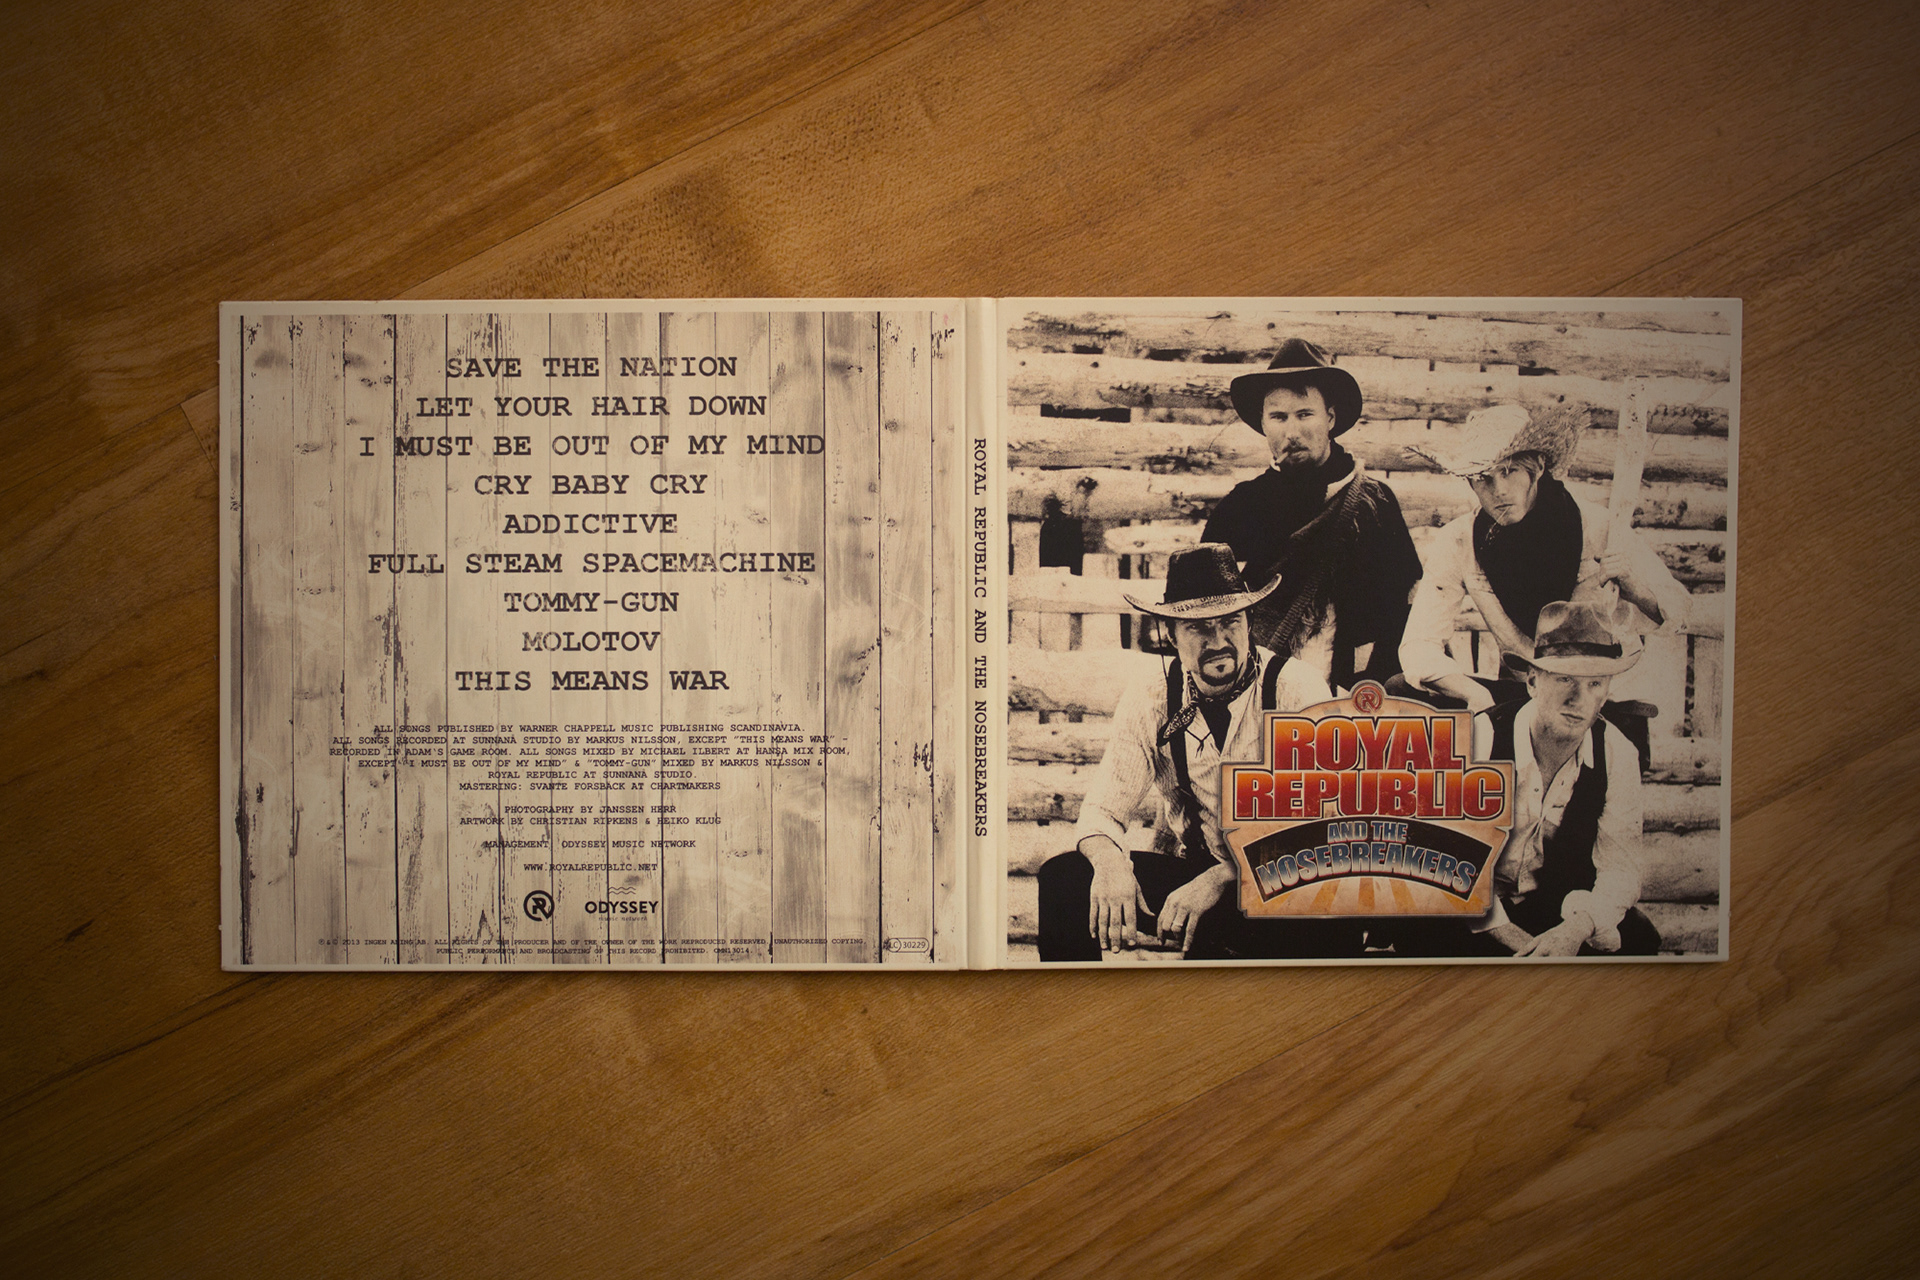 SAVE THE NATION
LET YOUR HAIR DOWN
I MUST BE OUT OF MY MIND
CRY BABY CRY
ADDICTIVE
FULL STEAM SPACEMACHINE
TOMMY-GUN
MOLOTOV
THIS MEANS WAR
ALL SONGS PUBLISHED BY WARNER CHAPPELL MUSIC PUBLISHING SCANDINAVIA.
ALL SONGS RECORDED AT SUNNANÅ STUDIO BY MARKUS NILSSON, EXCEPT "THIS MEANS WAR" -
RECORDED IN ADAM'S GAME ROOM. ALL SONGS MIXED BY MICHAEL ILBERT AT HANSA MIX ROOM,
EXCEPT "I MUST BE OUT OF MY MIND" & "TOMMY-GUN" MIXED BY MARKUS NILSSON &
ROYAL REPUBLIC AT SUNNANÅ STUDIO.
MASTERING: SVANTE FORSBÄCK AT CHARTMAKERS
PHOTOGRAPHY BY JANSSEN HERR
ARTWORK BY CHRISTIAN RIPKENS & HEIKO KLUG
MANAGEMENT ODYSSEY MUSIC NETWORK
WWW.ROYALREPUBLIC.NET
R
ODYSSEY
music network
℗ & © 2013 INGEN ANING AB. ALL RIGHTS OF THE PRODUCER AND OF THE OWNER OF THE WORK REPRODUCED RESERVED. UNAUTHORIZED COPYING,
PUBLIC PERFORMANCE AND BROADCASTING OF THIS RECORD PROHIBITED. OMN13014.
LC 30229
ROYAL REPUBLIC AND THE NOSEBREAKERS
R
ROYAL
REPUBLIC
AND THE
NOSEBREAKERS